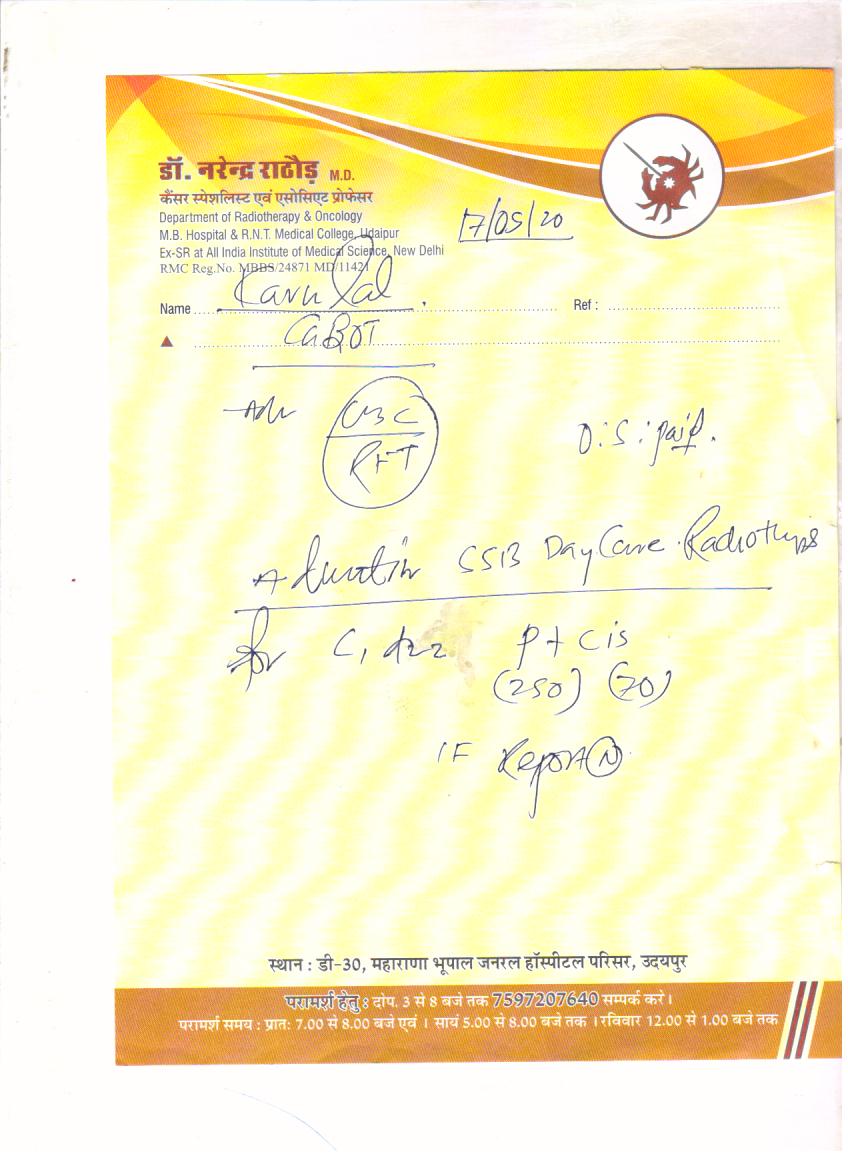 डॉ. नरेन्द्र राठौड़ M.D.
कैंसर स्पेशलिस्ट एवं एसोसिएट प्रोफेसर
Department of Radiotherapy & Oncology
M.B. Hospital & R.N.T. Medical College, Udaipur
Ex-SR at All India Institute of Medical Science, New Delhi
RMC Reg.No. MBBS/24871 MD/11421
17/05/20
Name Lal
Ref :
Ca BOT
Adv CBC
RFT
in SSB Day Care
for C1 P + Cis
(250) (70)
IF Report (N)
स्थान : डी-30, महाराणा भूपाल जनरल हॉस्पीटल परिसर, उदयपुर
परामर्श हेतु : दोप. 3 से 8 बजे तक 7597207640 सम्पर्क करे ।
परामर्श समय : प्रातः 7.00 से 8.00 बजे एवं । सायं 5.00 से 8.00 बजे तक । रविवार 12.00 से 1.00 बजे तक